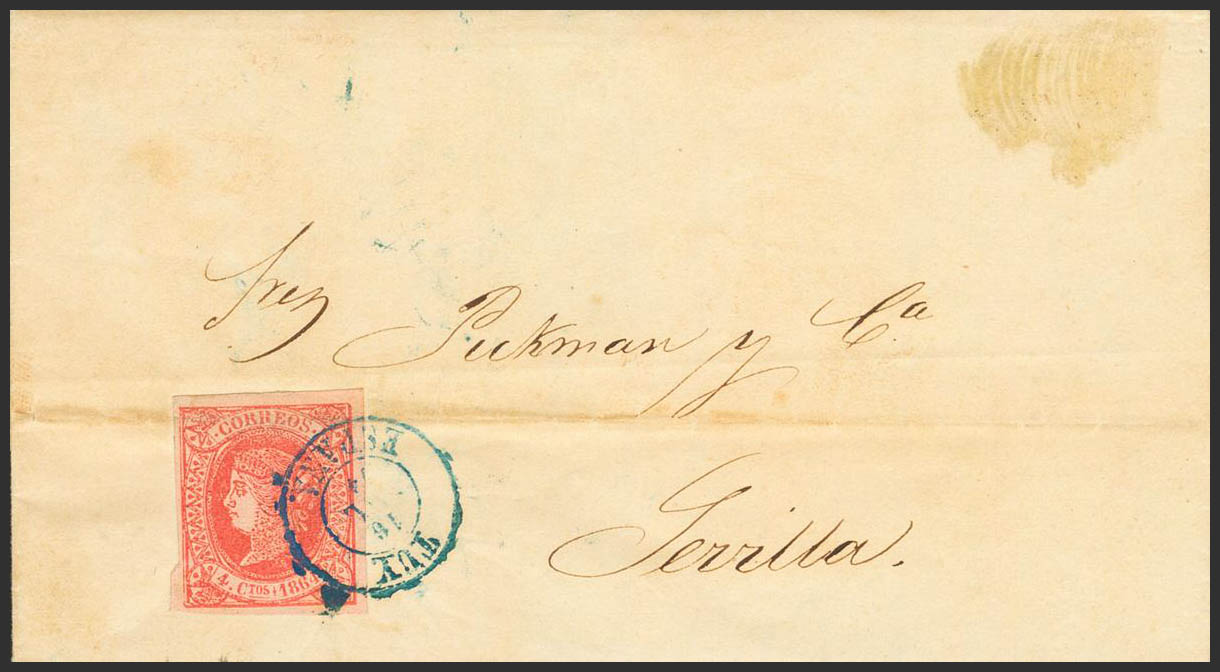 Sres
Pickman y Cª
Sevilla.
CORREOS.
4. CTOS 1864
ESPAÑA
TUY